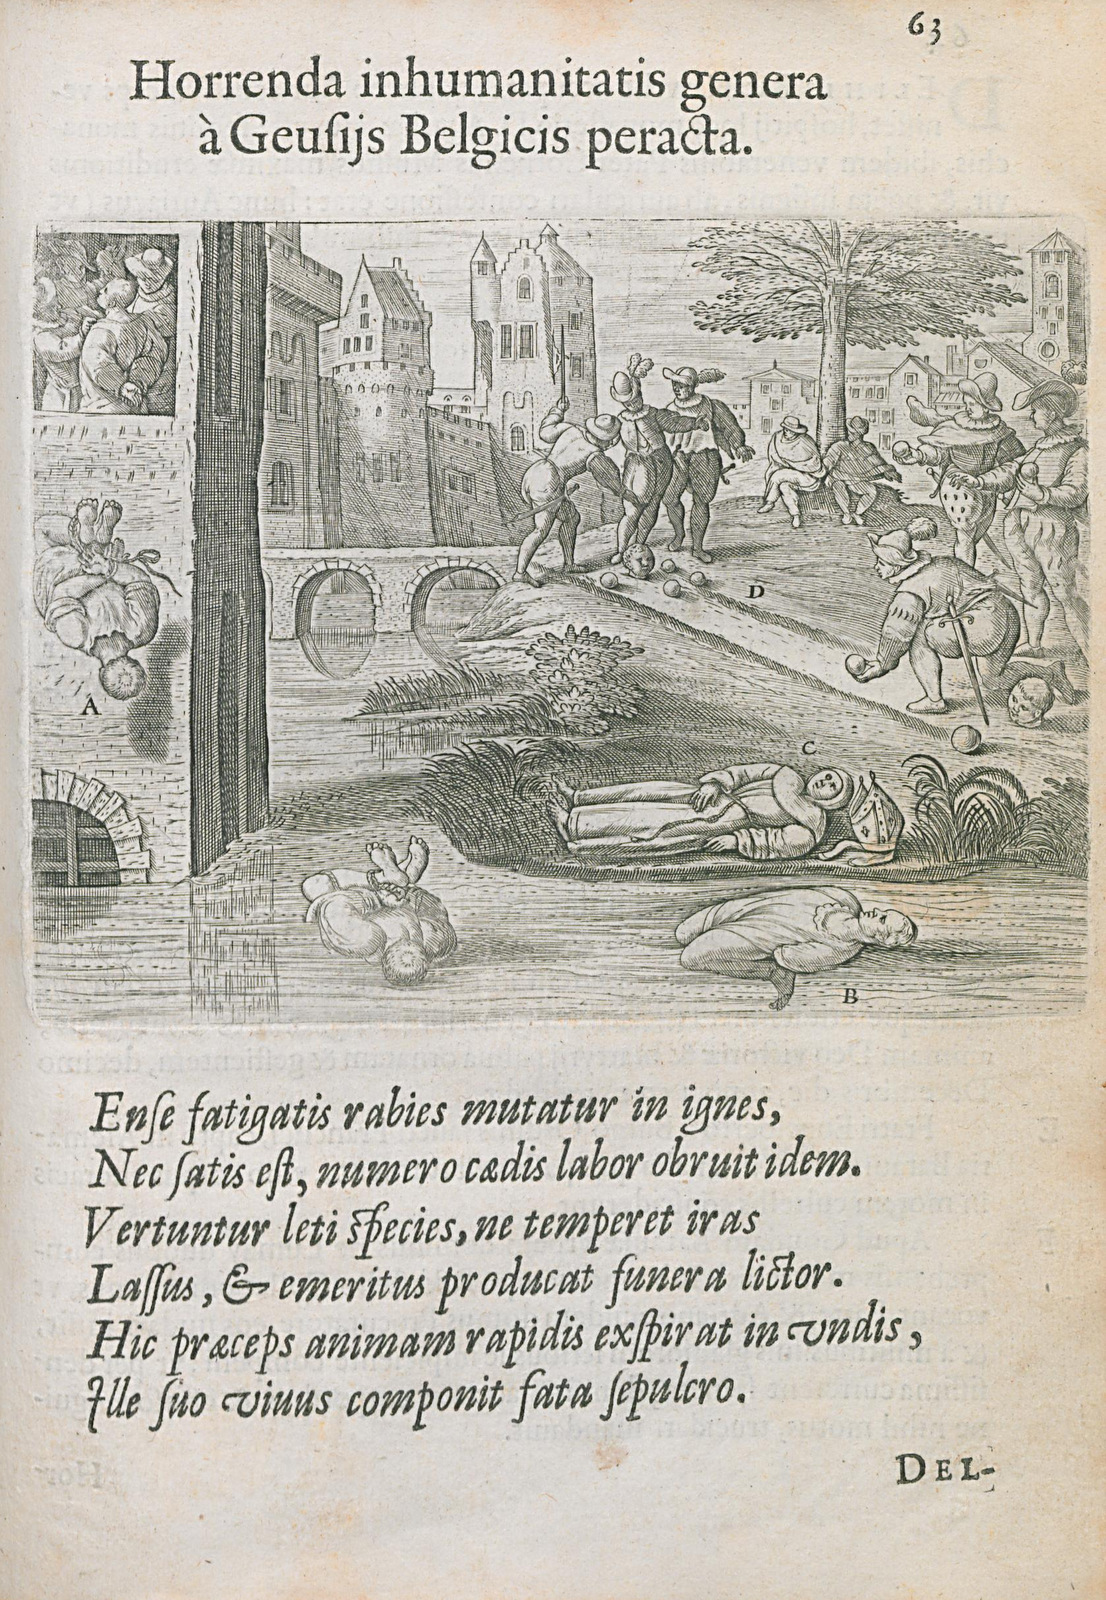 63
Horrenda inhumanitatis genera
à Geuſijs Belgicis peracta.
A
D
C
B
Enſe fatigatis rabies mutatur in ignes,
Nec ſatis eſt, numero cædis labor obruit idem.
Vertuntur leti ſpecies, ne temperet iras
Laſſus, & emeritus producat funera lictor.
Hic præceps animam rapidis exſpirat in vndis,
Ille ſuo viuus componit fata ſepulcro.
DEL-